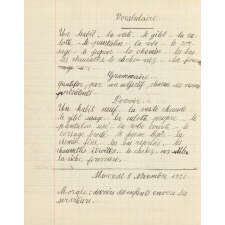 Vocabulaire
Un habit, la veste, le gilet, la cu-
lotte, le pantalon, la robe, le cor-
sage, le jupon, la chemise, les bas
les chaussettes, le cache-nez, la four
Grammaire
qualifier par un adjectif chacun des noms
précédents
Devoir
Un habit neuf, la veste chaude
le gilet rouge, la culotte propre, le
pantalon usé, la robe courte, le
corsage brodé, le jupon léger, la
chemise fine, les bas reprisés, les
chaussettes étroites, le cache-nez
la riche fourrure.
Mercredi 8 Novembre
Morale: devoirs des enfants envers les
serviteurs.